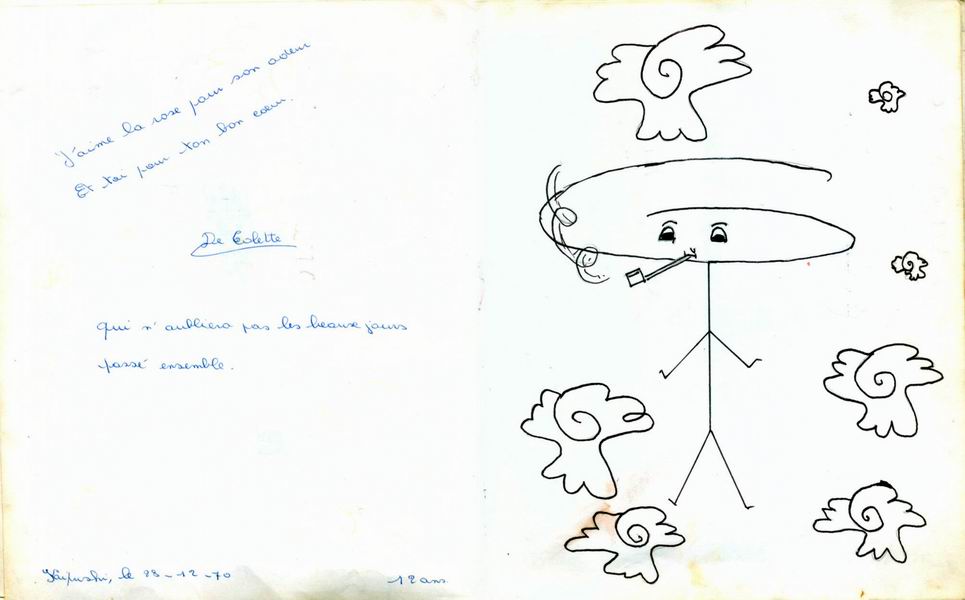 J'aime la rose pour son odeur
Et toi pour ton bon coeur.
De Colette
qui n'oubliera pas les beaux jours
passé ensemble.
Kipushi, le 28-12-70
12 ans